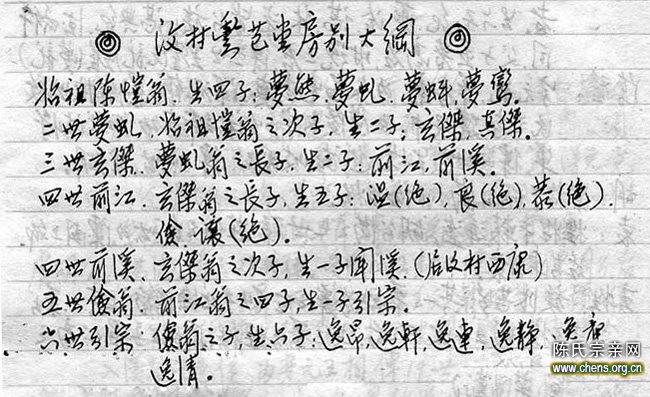 ◎ 汶村鳌芑堂房别大綱 ◎
始祖陈愷翁．生四子：夢熊，夢虬．夢蚪，夢鸞．
二世夢虬．始祖愷翁之次子，生二子：玄傑，真傑．
三世玄傑．夢虬翁之長子，生二子：前江，前溪．
四世前江．玄傑翁之長子，生五子：温(绝)，良(绝)，恭(绝)．
儉，讓(绝)．
四世前溪．玄傑翁之次子，生一子闻溪．(居汶村西康)
五世儉翁．前江翁之四子，生一子引宗．
六世引宗．儉翁之子，生六子：逸昂，逸軒，逸車，逸静，逸康
逸清。
陈氏宗亲网
www.chens.org.cn